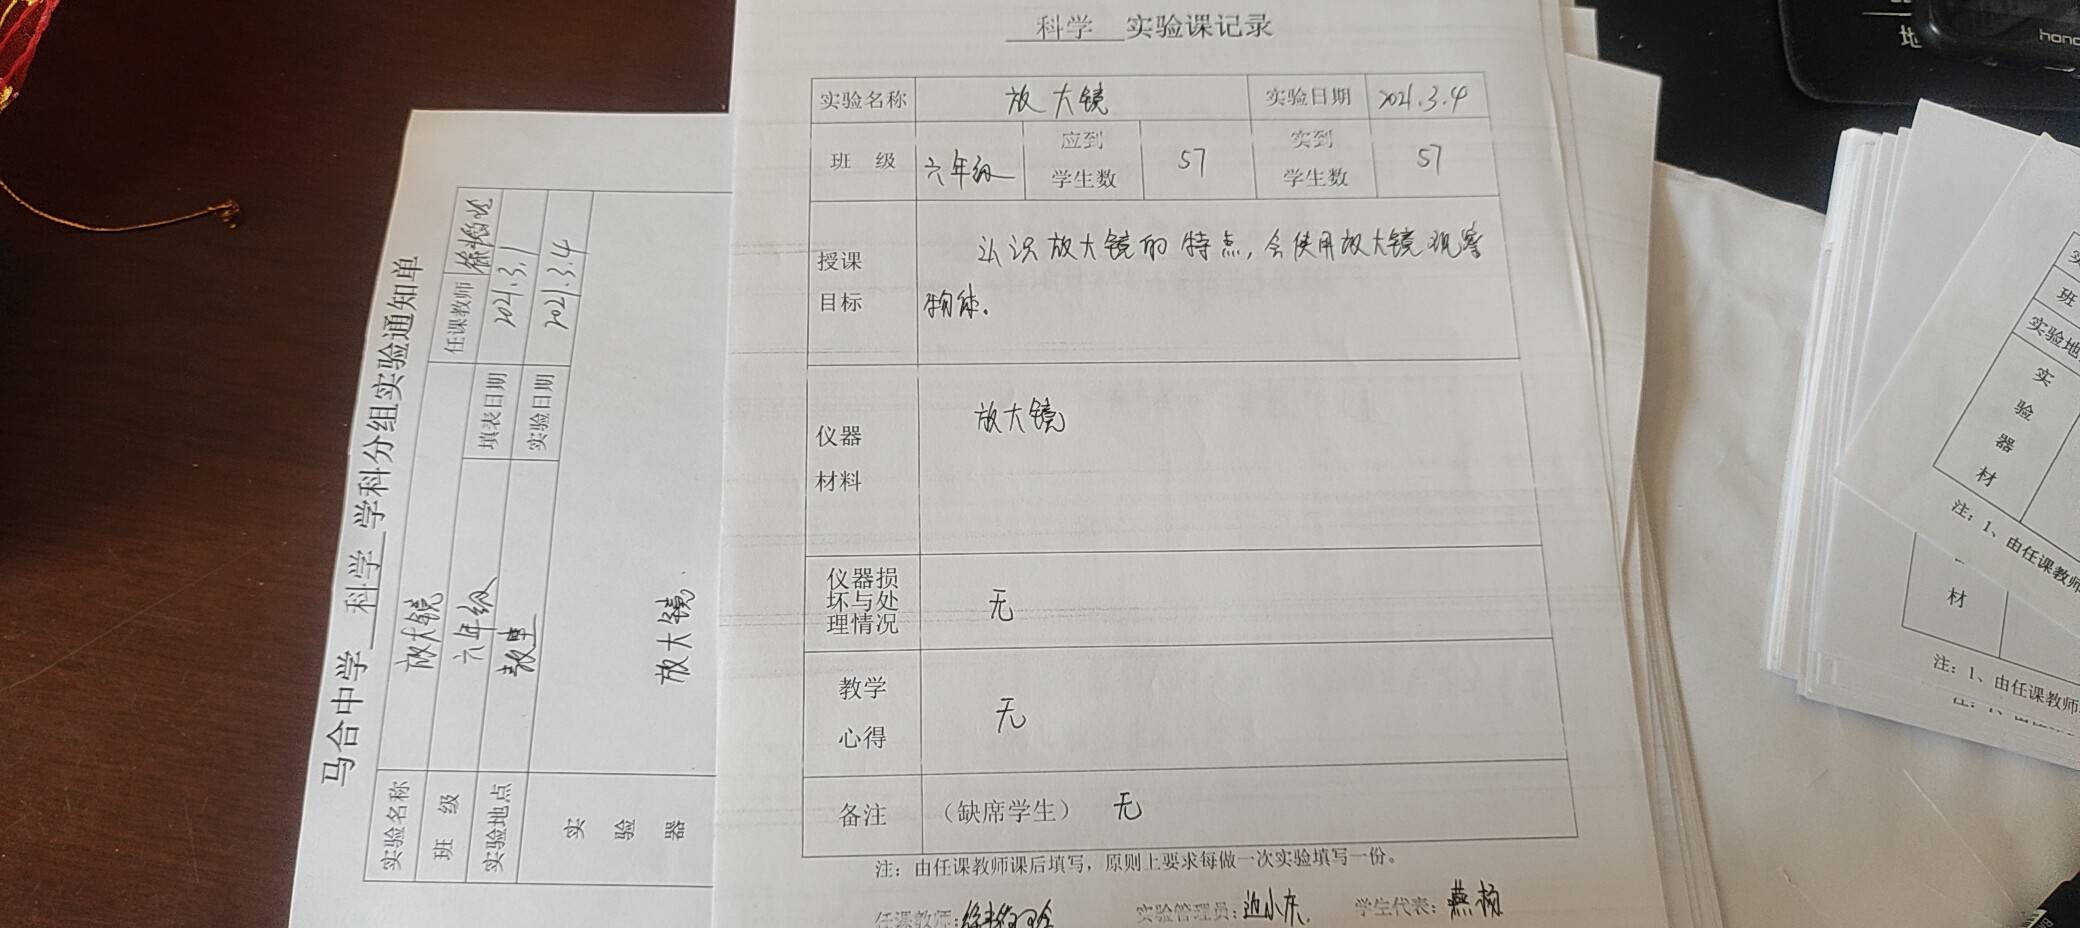 科学 实验课记录
实验名称 放大镜 实验日期 2021.3.4
班 级 六年级 应到学生数 57 实到学生数 57
授课目标 认识放大镜的特点,会使用放大镜观察
物体。
仪器材料 放大镜
仪器损坏与处理情况 无
教学心得 无
备注 (缺席学生) 无
注:由任课教师课后填写,原则上要求每做一次实验填写一份。
任课教师: 实验管理员: 学生代表:燕杨
马合中学 科学 学科分组实验通知单
实验名称 放大镜 任课教师
班 级 六年级 填表日期 2021.3.1
实验地点 教室 实验日期 2021.3.4
实验器 放大镜.
地
hono
班
实验地
实验器材
注:1、由任课教师
材
注:1、由任课教师